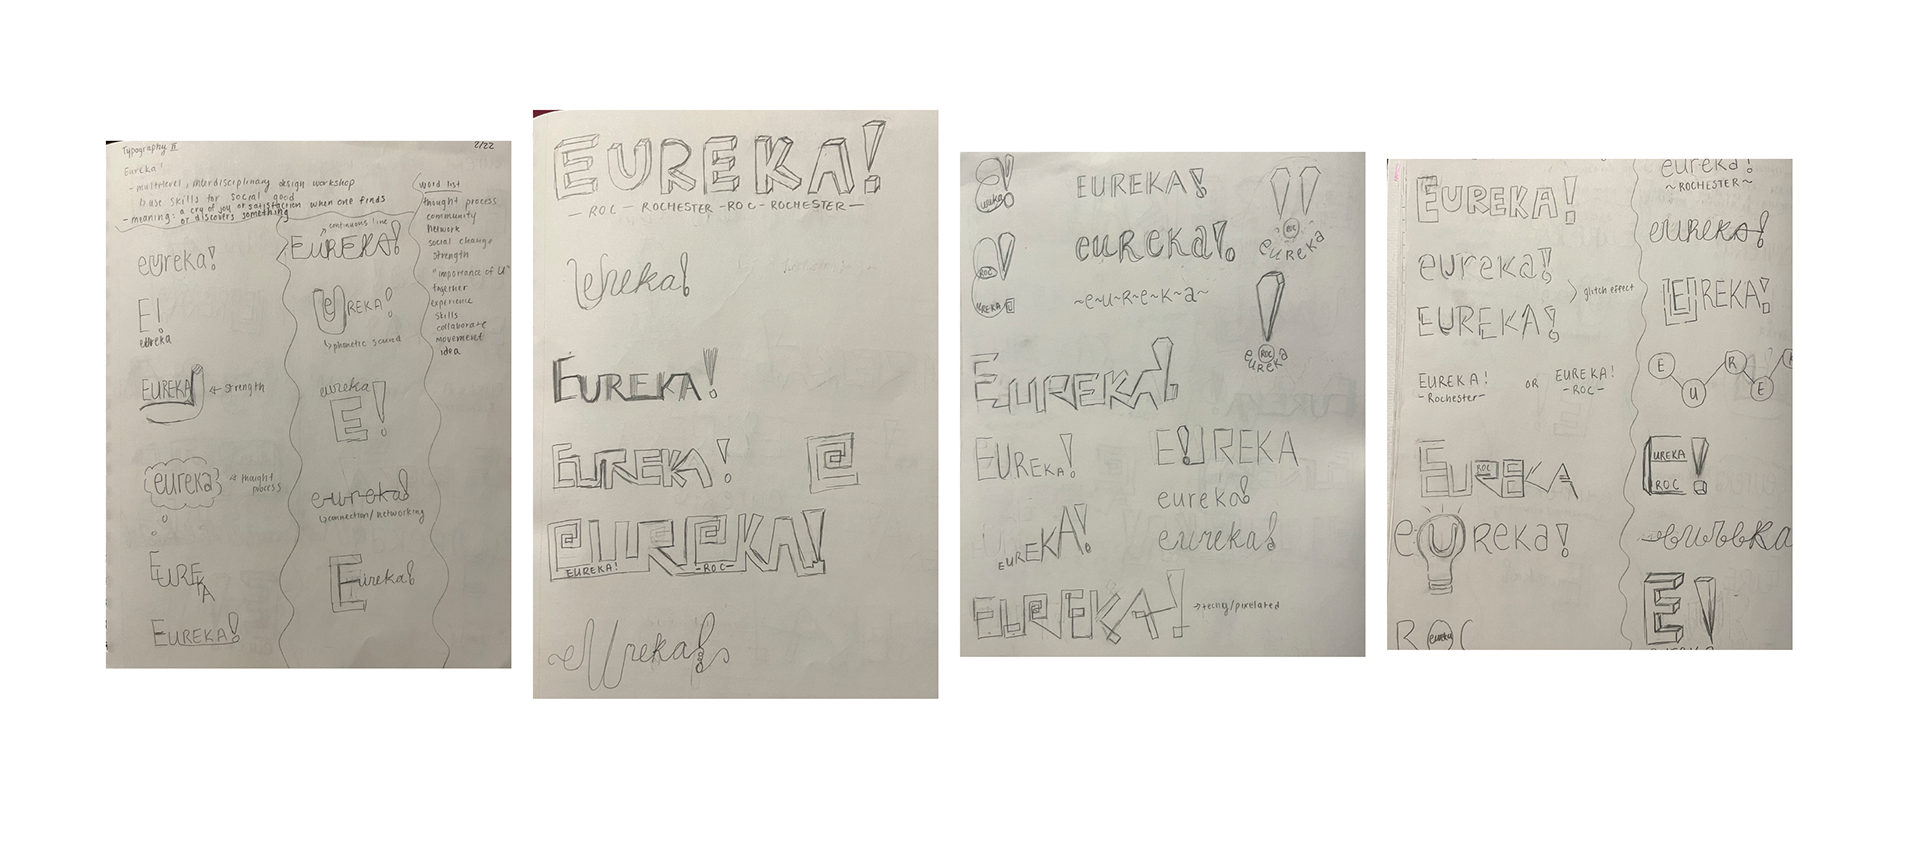 Typography II
2/22
Eureka!
- multilevel, interdisciplinary design workshop
use skills for social good
- meaning: a cry of joy or satisfaction when one finds
or discovers something
eureka!
E!
eureka
EUREKA!
strength
eureka
thought
process
EUREKA
EUREKA!
continuous line
EUREKA!
eUREKA!
phonetic sound
eureka
E!
eureka!
connection/networking
Eureka!
word list
thought process
community
network
social change
strength
"importance of U"
together
experience
skills
collaborate
movement
idea
EUREKA!
- ROC - ROCHESTER - ROC - ROCHESTER -
eureka!
EUREKA!
EUREKA!
e
eUReKA!
EUREKA!
-ROC-
eureka!
!
eureka
!
ROC
EUREKA
EUREKA!
eureka!
~e~u~R~e~K~a~
!!
ROC
eureka
!
ROC
eureka
EUREKA!
EUREKA!
E!UREKA
eureka!
eureka!
EUREKA!
EUREKA!
techy/pixelated
EUREKA!
eureka!
EUREKA!
glitch effect
EUREKA!
-Rochester-
OR
EUREKA!
-ROC-
EUREKA
ROC
eUReka!
ROC
eureka
eureka!
~ROCHESTER~
eureka!
EREKA!
E
U
R
E
K
E!
UREKA
ROC
eureka
E!